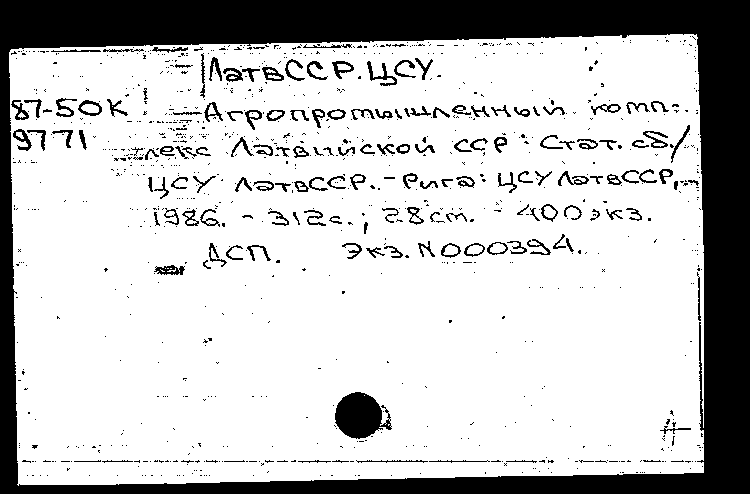 ЛатвССР. ЦСУ.
87-50К
9771
Агропромышленный комп-
лекс Латвийской ССР : Стат. сб./
ЦСУ ЛатвССР. - Рига : ЦСУ ЛатвССР,
1986. - 312с. ; 28см. - 400экз.
ДСП. Экз. N000394.
А